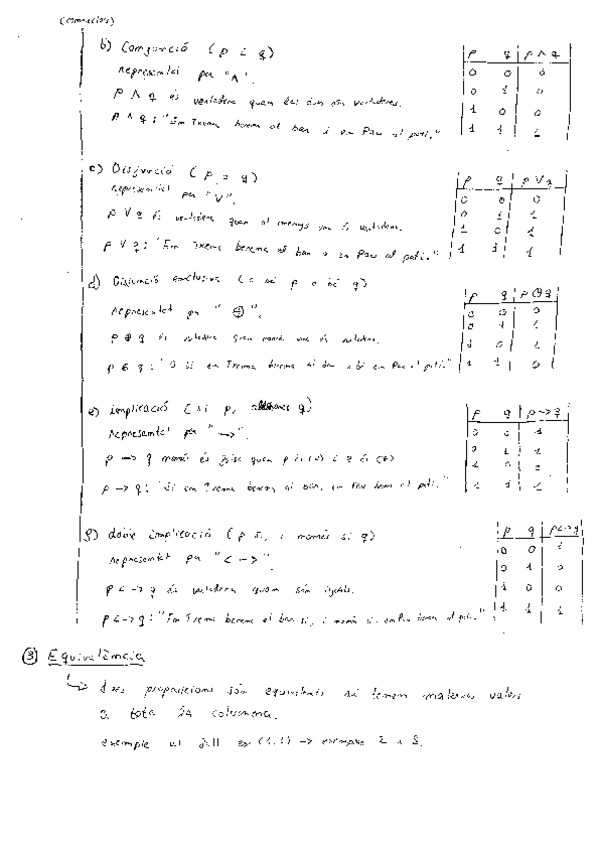 (connectors)
b) Conjunció (p i q)
representat per "∧".
p ∧ q és vertadera quan les dues són vertaderes.
p ∧ q: "En Txema berena al bar i en Pau al pati."
p q p ∧ q
0 0 0
0 1 0
1 0 0
1 1 1
c) Disjunció (p o q)
representat per "∨".
p ∨ q és vertadera quan al menys una és vertadera.
p ∨ q: "En Txema berena al bar o en Pau al pati."
p q p ∨ q
0 0 0
0 1 1
1 0 1
1 1 1
d) Disjunció exclusiva (o bé p o bé q)
representat per "⊕".
p ⊕ q és vertadera quan només una és vertadera.
p ⊕ q: "O bé en Txema berena al bar o bé en Pau al pati."
p q p ⊕ q
0 0 0
0 1 1
1 0 1
1 1 0
e) implicació (si p, q)
representat per "—>".
p —> q només és falsa quan p és (v) i q és (f)
p —> q: "Si en Txema berena al bar, en Pau berena al pati."
p q p —> q
0 0 1
0 1 1
1 0 0
1 1 1
f) doble implicació (p si, i només si q)
representat per "< —>".
p <—> q és vertadera quan són iguals.
p <—> q: "En Txema berena al bar si, i només si en Pau berena al pati."
p q p <—> q
0 0 1
0 1 0
1 0 0
1 1 1
③ Equivalència
↳ dues proposicions són equivalents si tenen mateixos valors
a tota la columna.
exemple al full ex (1.1) —> exemples 2 i 3.